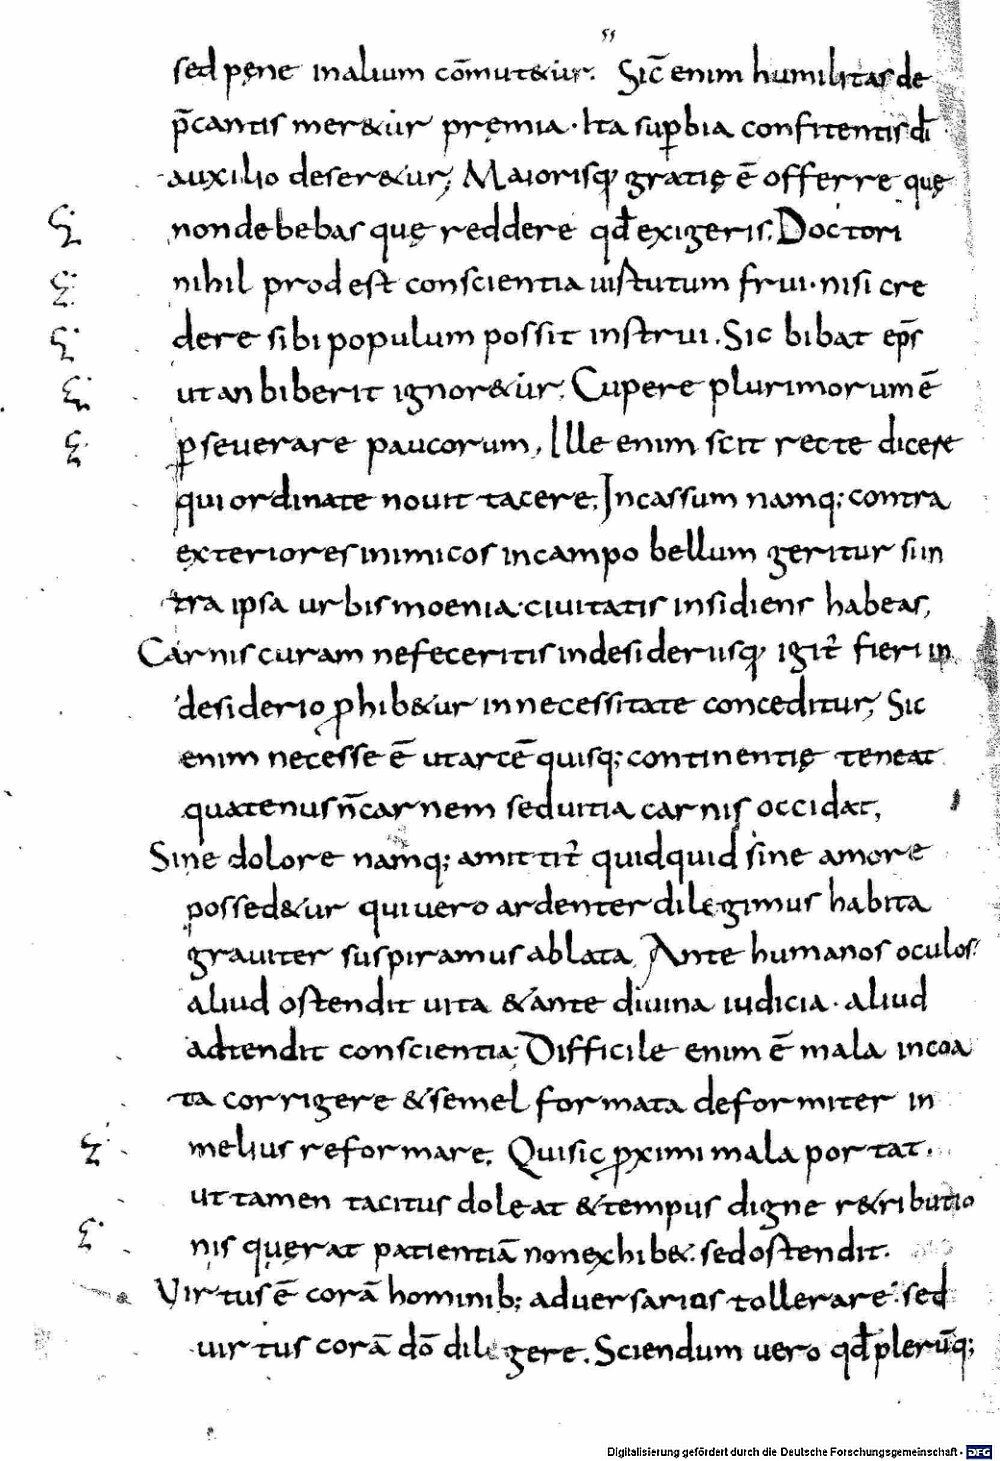 55
sed pęne inalium cōmut&ur. Sic̄ enim humilitas de
p̄cantis mer&ur pręmia. Ita suꝑbia confitentis dī
auxilio deser&ur; Maiorisq; gratię ē offerre quę
nondebebas quę reddere qđ exigeris. Doctori
nihil prodest conscientia uirtutum frui. nisi cre
dere sibi populum possit instrui. Sic bibat ep̄s
ut an biberit ignor&ur. Cupere plurimorum ē
ꝑseuerare paucorum, Ille enim scit recte dicere
qui ordinate nouit tacere. Incassum namq; contra
exteriores inimicos incampo bellum geritur si in
tra ipsa urbis moenia ciuitatis insidiens habeas,
Carnis curam ne feceritis indesideriisq; igit̄ fieri in
desiderio ꝓhib&ur innecessitate conceditur, Sic
enim necesse ē ut artē quisq; continentię teneat
quatenus n̄ carnem sed uitia carnis occidat,
Sine dolore namq; amittit̄ quidquid sine amore
possed&ur qui uero ardenter diligimus habita
grauiter suspiramus ablata. Ante humanos oculos
aliud ostendit uita & ante diuina iudicia. aliud
adtendit conscientia; Difficile enim ē mala incoa
ta corrigere & semel formata deformiter in
melius reformare. Qui sic ꝓximi mala portat.
ut tamen tacitus doleat & tempus digne r&ributio
nis quęrat patientiā non exhib& sed ostendit.
Virtus ē corā hominib; aduersarios tollerare. sed
uirtus corā dō diligere. Sciendum uero qđ pleru̅q;
Digitalisierung gefördert durch die Deutsche Forschungsgemeinschaft - DFG